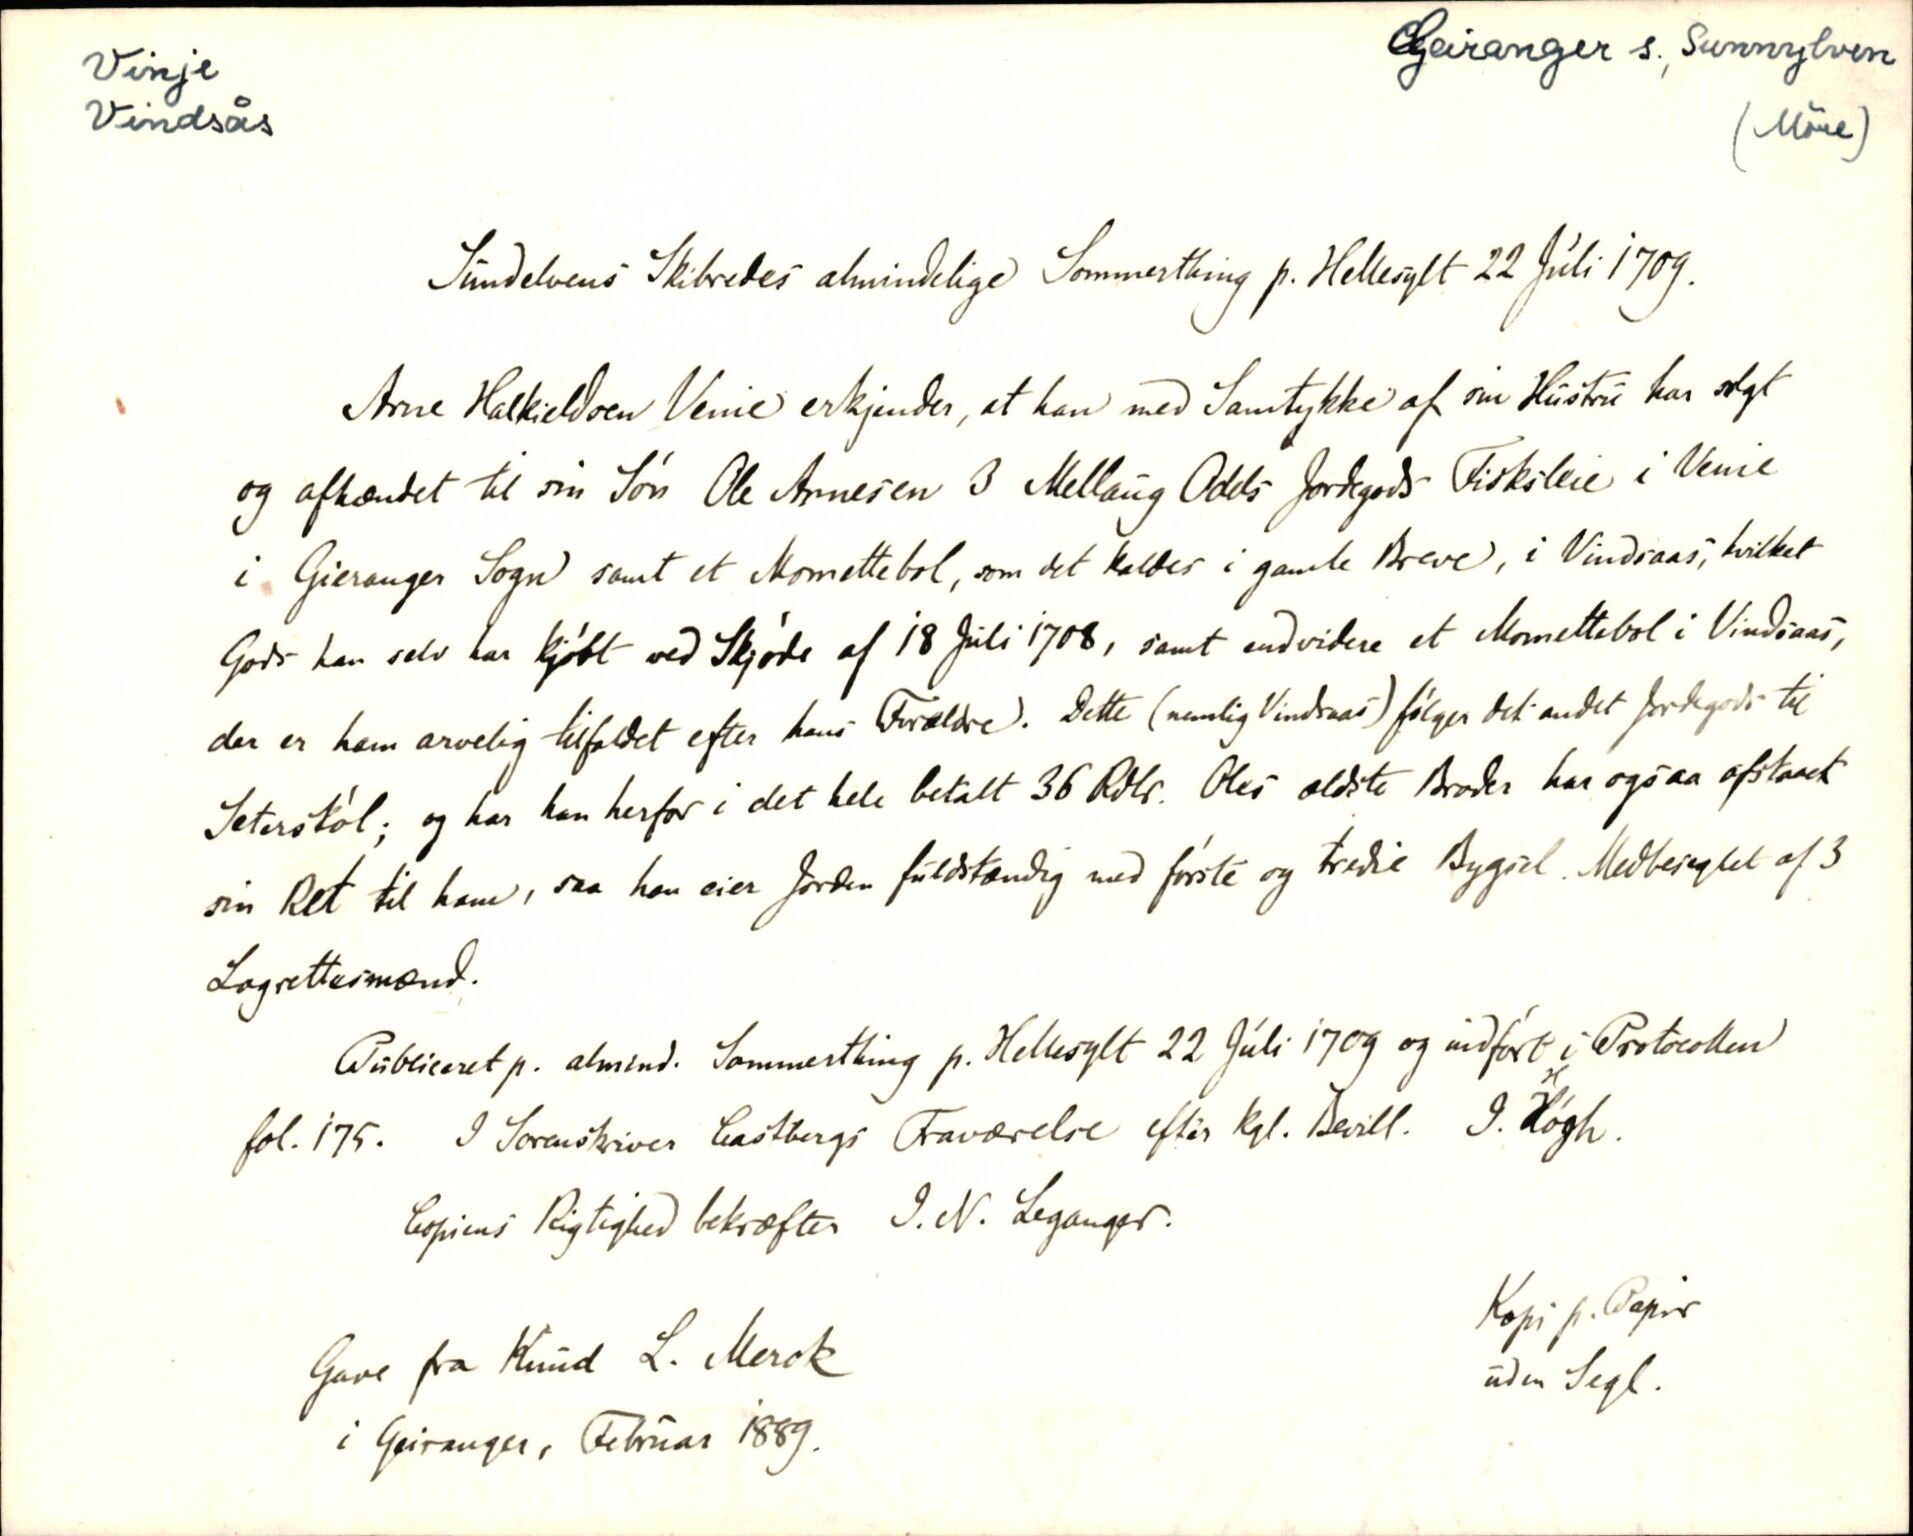 Vinje
Vindsås
Geiranger s., Sunnylven
(Möre)
Sundelvens Skibredes almindelige Sommerthing p. Hellesylt 22 Juli 1709.
Arne Halkieldsen Venie erkjender, at han med Samtykke af sin Hustru har solgt
og afhændet til sin Sön Ole Arnesen 3 Mellaug Odels Jordegods Fisksleie i Venie
i Gieranger Sogn samt et Momettebol, som det kaldes i gamle Breve, i Vindsaas, hvilket
Gods han selv har kjöbt ved Skjöde af 18 Juli 1708, samt endvidere et Momettebol i Vindsaas,
der er ham arvelig tilfaldet efter hans Forældre. Dette (nemlig Vindsaas) fölger det andet Jordegods til
Seterstöl; og har han herfor i det hele betalt 36 Rdlr. Oles ældste Broder har ogsaa afstaaet
sin Ret til ham, saa han eier Jorden fuldstændig med förste og tredie Bygsel. Medbeseglet af 3
Lagrettesmænd.
Publiceret p. almind. Sommerthing p. Hellesylt 22 Juli 1709 og indfört i Protocollen
fol. 175. I Sorenskriver Castbergs Fraværelse efter kgl. Bevill. I. Högh.
Copiens Rigtighed bekræfter I. N. Leganger.
Kopi p. Papir
uden Segl.
Gave fra Knud L. Merok
i Geiranger, Februar 1889.